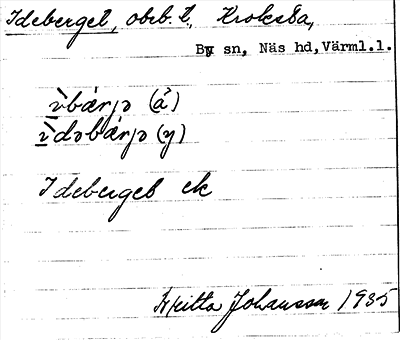 Ideberget, obeb. t. Kroksta,
By sn, Näs hd, Värml.l.
ìbærjə (ä)
ìdəbærjə (y)
Ideberget ek
Britta Johansson 1935